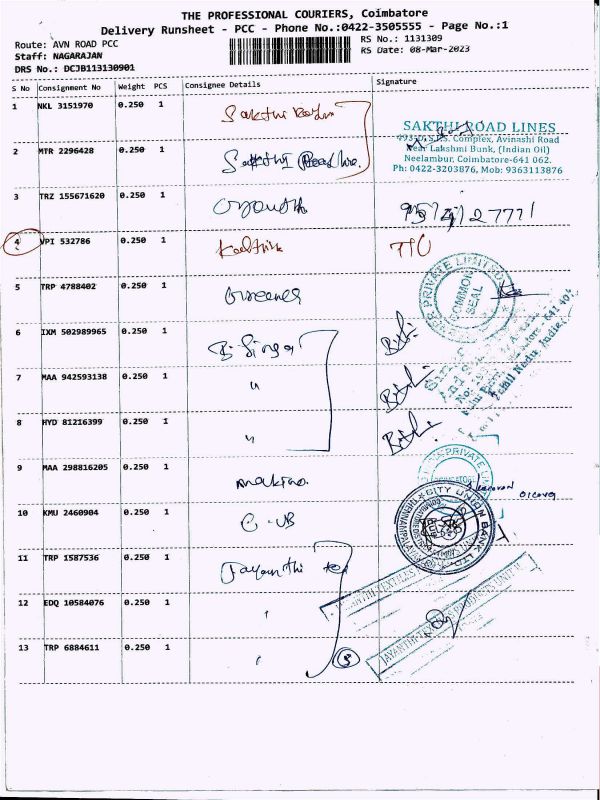 THE PROFESSIONAL COURIERS, Coimbatore
Delivery Runsheet - PCC - Phone No.:0422-3505555 - Page No.:1
Route: AVN ROAD PCC
RS No.: 1131309
Staff: NAGARAJAN
RS Date: 08-Mar-2023
DRS No.: DCJB113130901
S No Consignment No Weight PCS Consignee Details Signature
1 NKL 3151970 0.250 1 Sakthi
SAKTHI ROAD LINES
Complex, Avinashi Road
2 MTR 2296428 0.250 1 Sakthi Road
Near Lakshmi Bank, (Indian Oil)
Neelambur, Coimbatore-641 062.
Ph: 0422-3203876, Mob: 9363113876
3 TRZ 155671620 0.250 1
4 VPI 532786 0.250 1
5 TRP 4788402 0.250 1
PRIVATE LIMITED
COMMON SEAL
6 IXM 502989965 0.250 1
Tamil Nadu, India
7 MAA 942593138 0.250 1 "
8 HYD 81216399 0.250 1 "
9 MAA 298816205 0.250 1 makino
PRIVATE
10 KMU 2460904 0.250 1 C-UB
CITY UNION BANK LTD
11 TRP 1587536 0.250 1 Jayanthi tex
12 EDQ 10584076 0.250 1
13 TRP 6884611 0.250 1
3